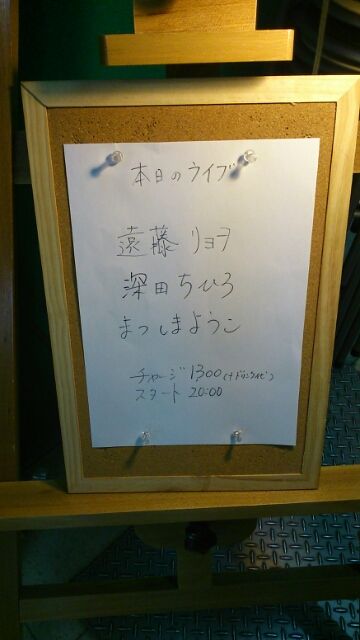 本日のライブ
遠藤 リョヲ
深田ちひろ
まつしまようこ
チャージ 1300(+ドリンクべつ)
スタート 20:00